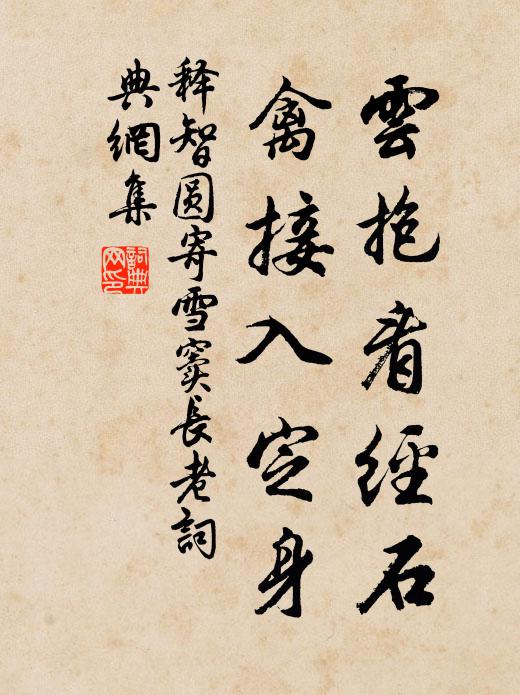 雲抱看經石
禽接入定身
释智圆寄雪窦長老詞
典網集
詞典网印